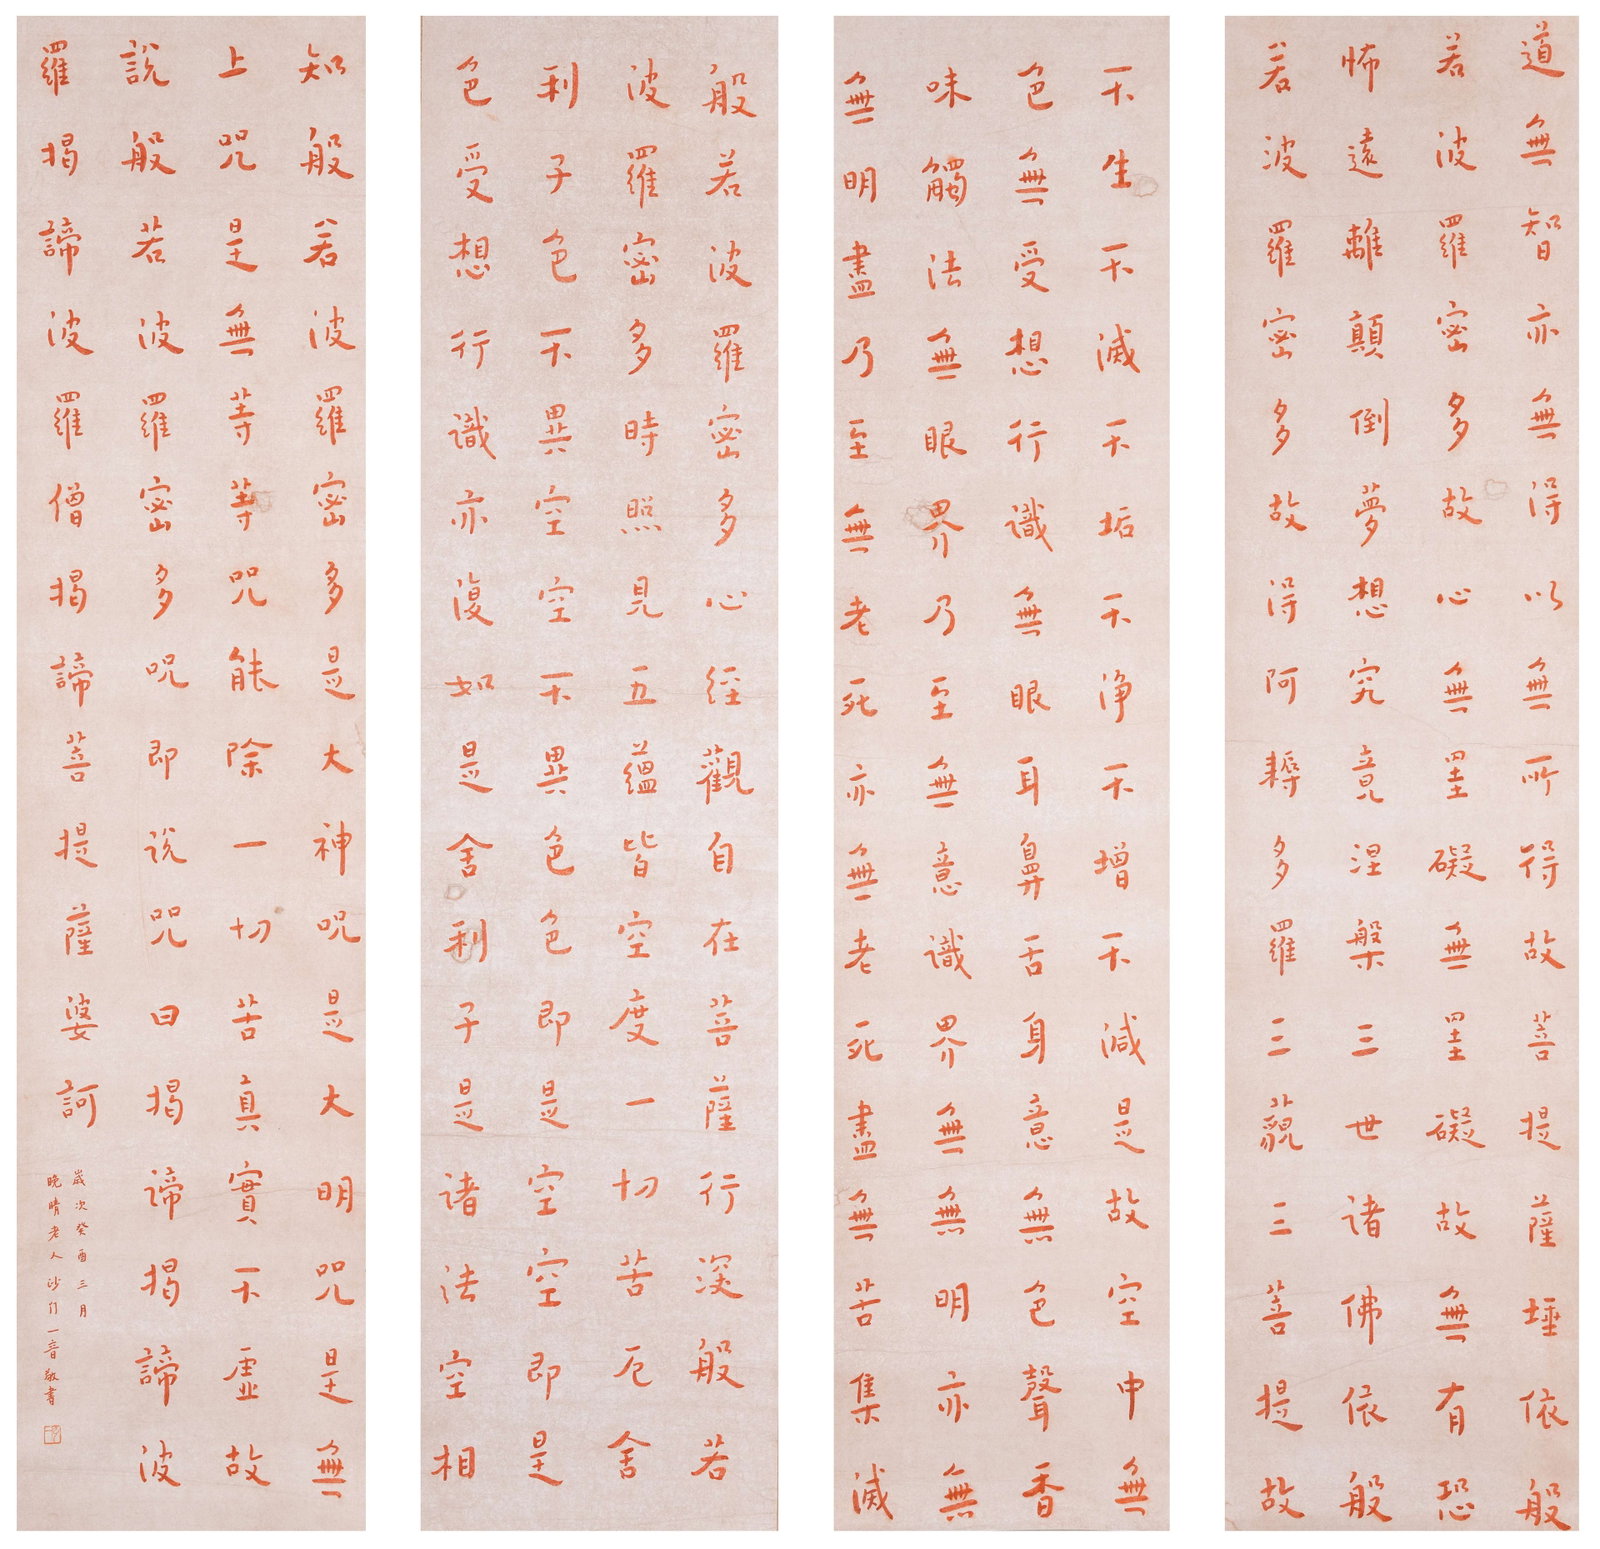 般若波羅密多心經觀自在菩薩行深般若
波羅密多時照見五蘊皆空度一切苦厄舍
利子色不異空空不異色色即是空空即是
色受想行識亦復如是舍利子是諸法空相
不生不滅不垢不淨不增不減是故空中無
色無受想行識無眼耳鼻舌身意無色聲香
味觸法無眼界乃至無意識界無無明亦無
無明盡乃至無老死亦無老死盡無苦集滅
道無智亦無得以無所得故菩提薩埵依般
若波羅密多故心無罣礙無罣礙故無有恐
怖遠離顛倒夢想究竟涅槃三世諸佛依般
若波羅密多故得阿耨多羅三藐三菩提故
知般若波羅密多是大神呪是大明呪是無
上呪是無等等呪能除一切苦真實不虛故
說般若波羅密多呪即說呪曰揭諦揭諦波
羅揭諦波羅僧揭諦菩提薩婆訶
歲次癸酉三月
晚晴老人沙門一音敬書